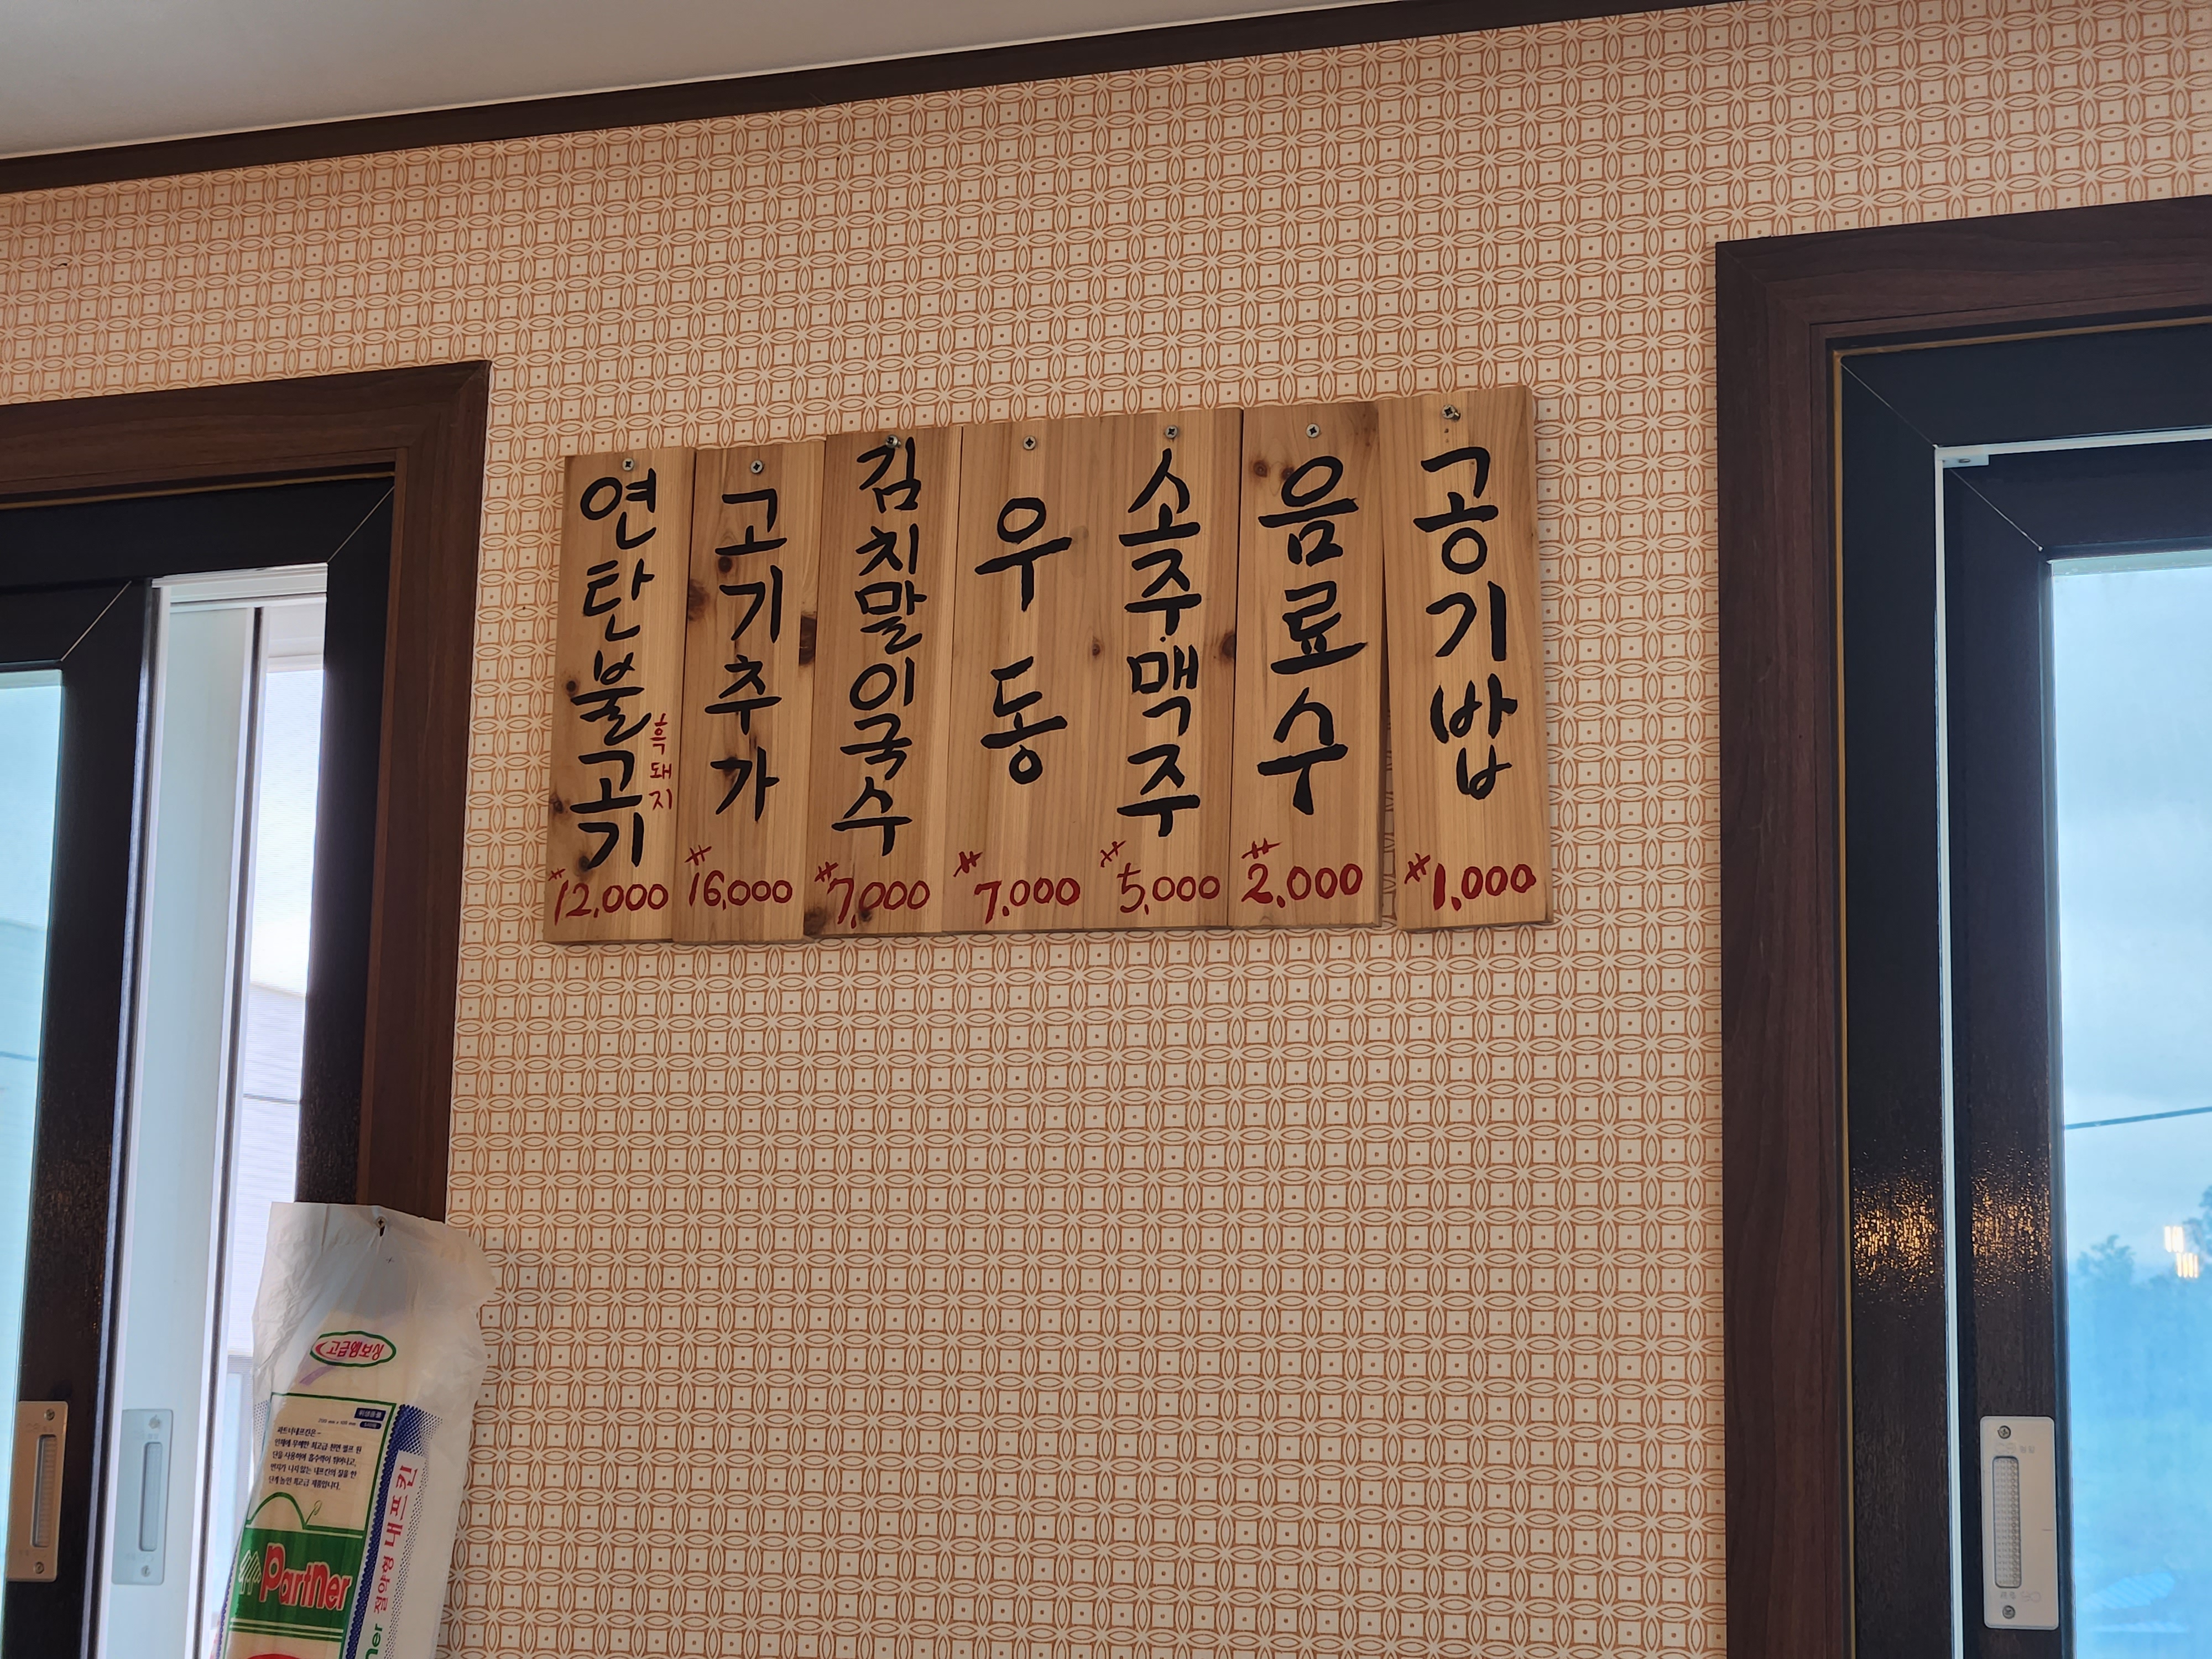 연탄불고기
흑돼지
₩12,000
고기추가
₩16,000
김치말이국수
₩7,000
우동
₩7,000
소주.맥주
₩5,000
음료수
₩2,000
공기밥
₩1,000
고급엠보싱
Partner
냅프킨